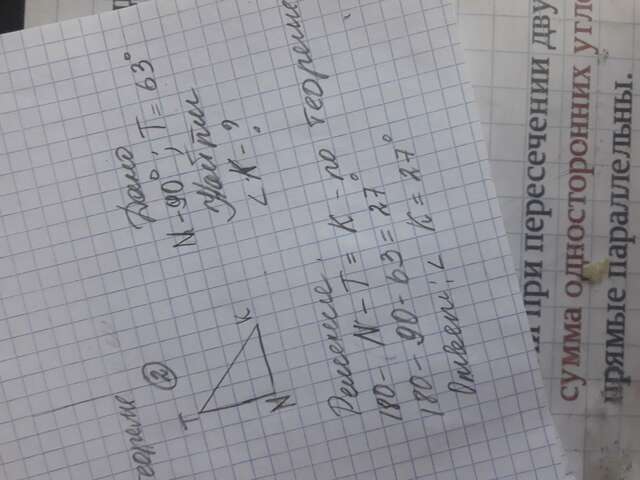 еореме
②
T
K
N
Дано
N-90°; T=63°
Найти
∠K-?
Решение:
180-N-T=K-по теореме
180-90-63=27°
Ответ: ∠K=27°
и при пересечении дву
сумма односторонних угло
прямые параллельны.